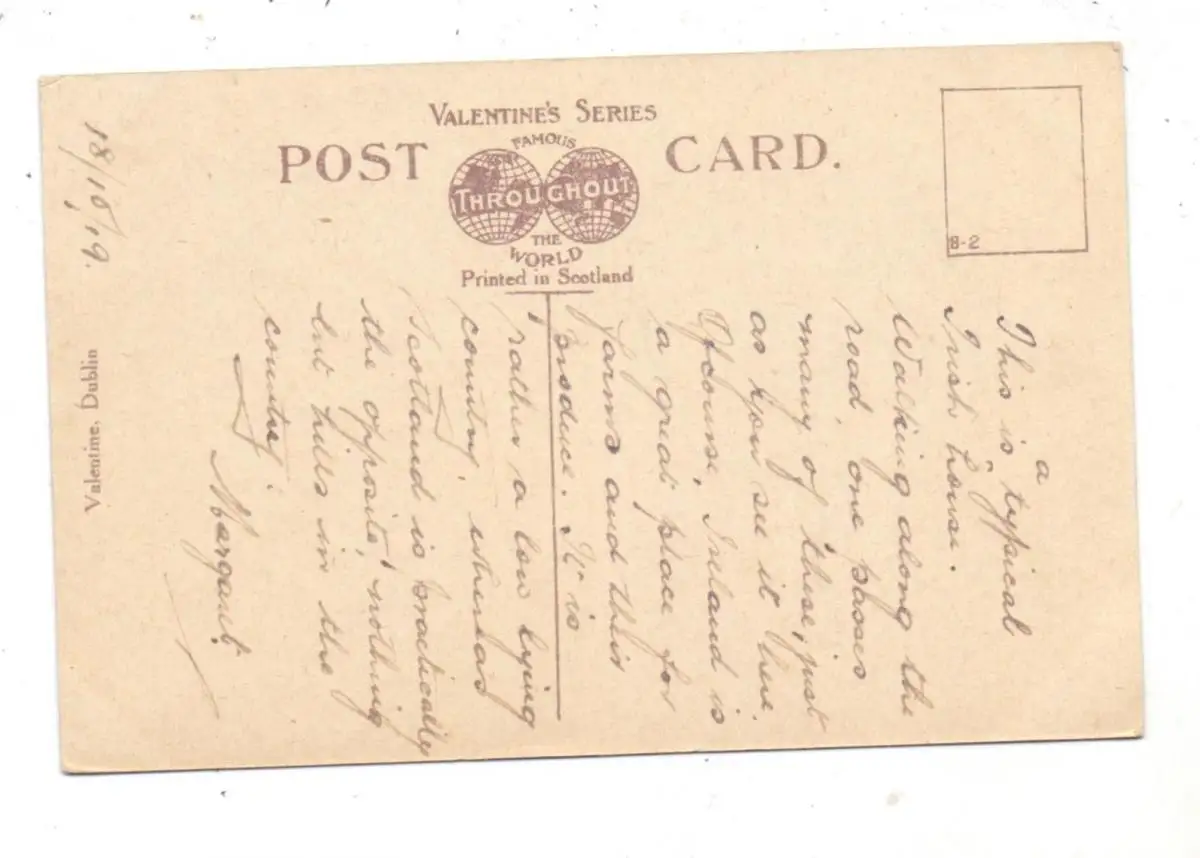 VALENTINE'S SERIES
POST CARD.
FAMOUS
THROUGHOUT
THE
WORLD
Printed in Scotland
8-2
Valentine, Dublin
18/10/19.
This is a typical
Irish house.
Walking along the
road, one passes
many of these, just
as you see it here.
Of course, Ireland is
a great place for
farms and this
produce. It is
rather a low lying
country, whereas
Scotland is practically
the opposite, nothing
but hills in the
country.
Margaret.